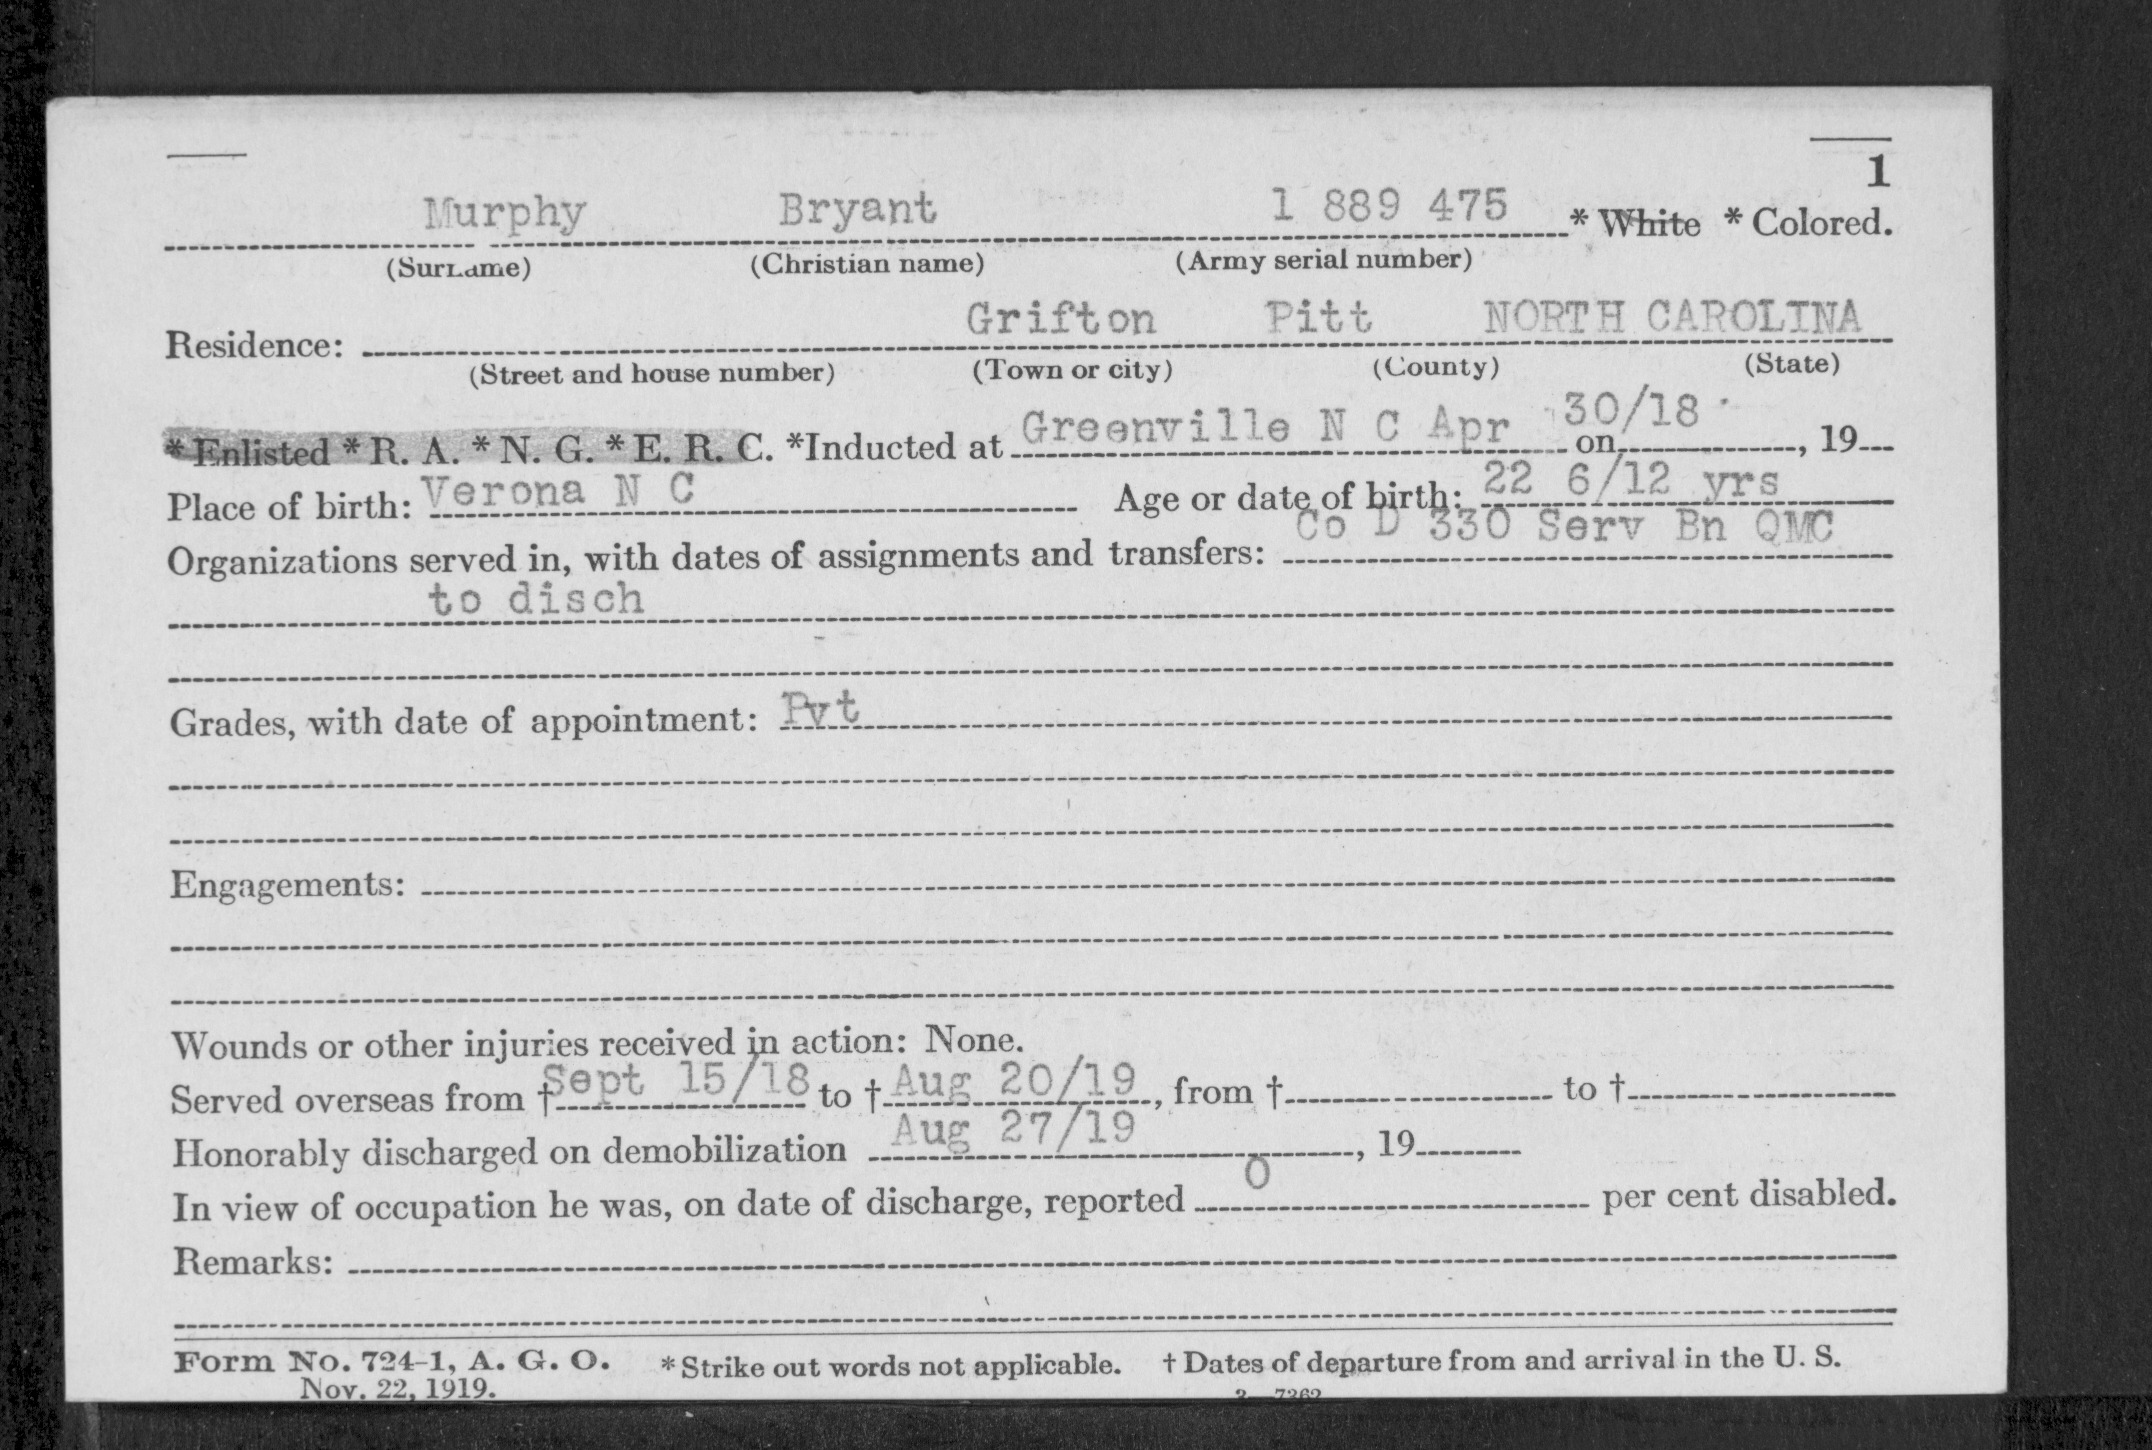 1
Murphy Bryant 1 889 475 * White * Colored.
(Surname) (Christian name) (Army serial number)
Grifton Pitt NORTH CAROLINA
Residence:
(Street and house number) (Town or city) (County) (State)
*Enlisted *R. A. *N. G. *E. R. C. *Inducted at Greenville N C Apr on 30/18, 19
Place of birth: Verona N C Age or date of birth: 22 6/12 yrs
Organizations served in, with dates of assignments and transfers: Co D 330 Serv Bn QMC
to disch
Grades, with date of appointment: Pvt
Engagements:
Wounds or other injuries received in action: None.
Served overseas from † Sept 15/18 to † Aug 20/19, from † to †
Honorably discharged on demobilization Aug 27/19, 19
In view of occupation he was, on date of discharge, reported 0 per cent disabled.
Remarks:
Form No. 724-1, A. G. O. *Strike out words not applicable. † Dates of departure from and arrival in the U. S.
Nov. 22, 1919. 3—7362